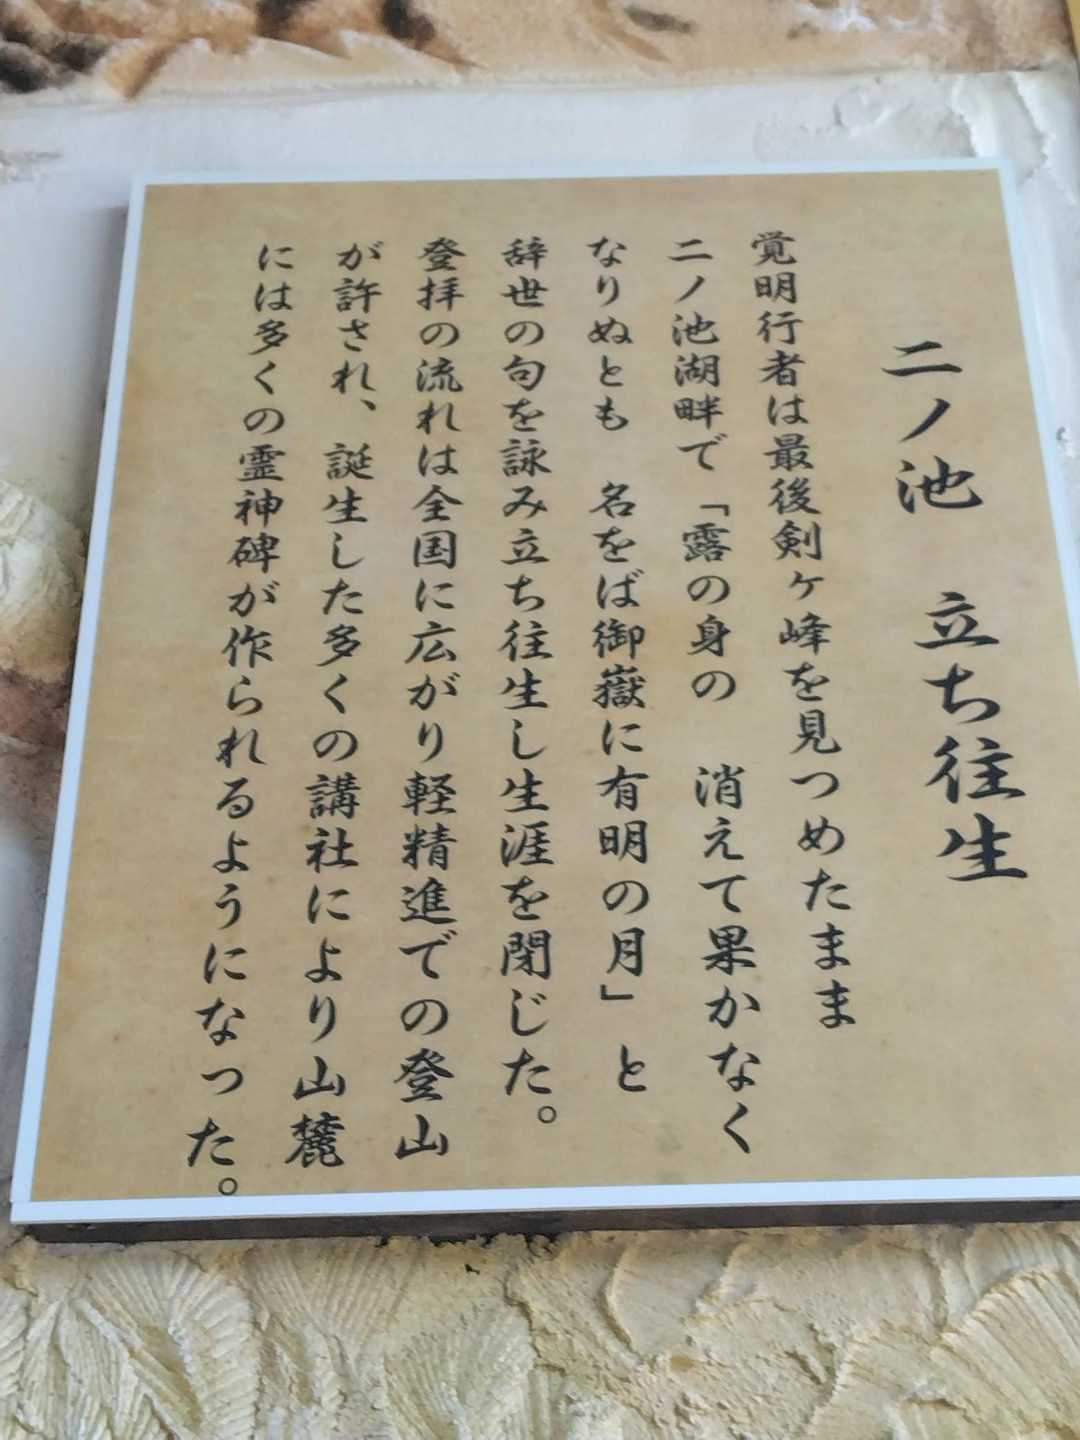 二ノ池　立ち往生
覚明行者は最後剣ヶ峰を見つめたまま
二ノ池湖畔で「露の身の　消えて果かなく
なりぬとも　名をば御嶽に有明の月」と
辞世の句を詠み立ち往生し生涯を閉じた。
登拝の流れは全国に広がり軽精進での登山
が許され、誕生した多くの講社により山麓
には多くの霊神碑が作られるようになった。